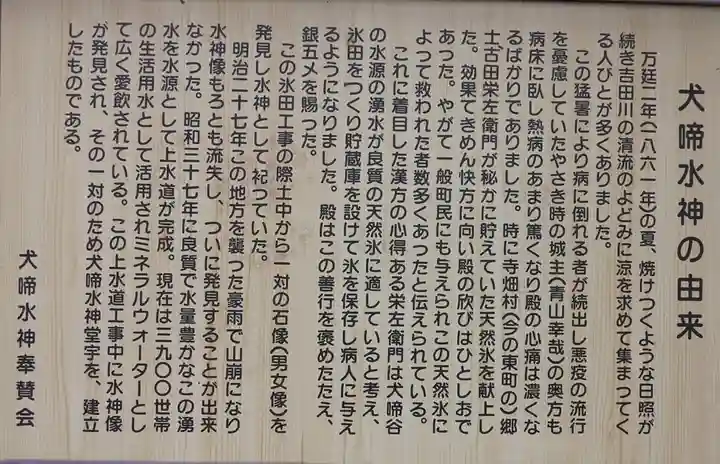 犬啼水神の由来
万廷二年(一八六一年)の夏、焼けつくような日照が
続き吉田川の清流のよどみに涼を求めて集まってく
る人びとが多くありました。
この猛暑により病に倒れる者が続出し悪疫の流行
を憂慮していたやさき時の城主(青山幸哉)の奥方も
病床に臥し熱病のあまり篤くなり殿の心痛は濃くな
るばかりでありました。時に寺畑村(今の東町の)郷
士古田栄左衛門が秘かに貯えていた天然氷を献上し
た。効果てきめん快方に向い殿の欣びはひとしおで
あった。やがて一般町民にも与えられこの天然氷に
よって救われた者数多くあったと伝えられている。
これに着目した漢方の心得ある栄左衛門は犬啼谷
の水源の湧水が良質の天然氷に適していると考え、
氷田をつくり貯蔵庫を設けて氷を保存し病人に与え
るようになりました。殿はこの善行を褒めたたえ、
銀五メを賜った。
この氷田工事の際土中から一対の石像(男女像)を
発見し水神として祀つていた。
明治二十七年この地方を襲った豪雨で山崩になり
水神像もろとも流失し、ついに発見することが出来
なかった。昭和三十七年に良質で水量豊かなこの湧
水を水源として上水道が完成。現在は三九〇〇世帯
の生活用水として活用されミネラルウォーターとし
て広く愛飲されている。この上水道工事中に水神像
が発見され、その一対のため犬啼水神堂宇を、建立
したものである。
犬啼水神奉賛会